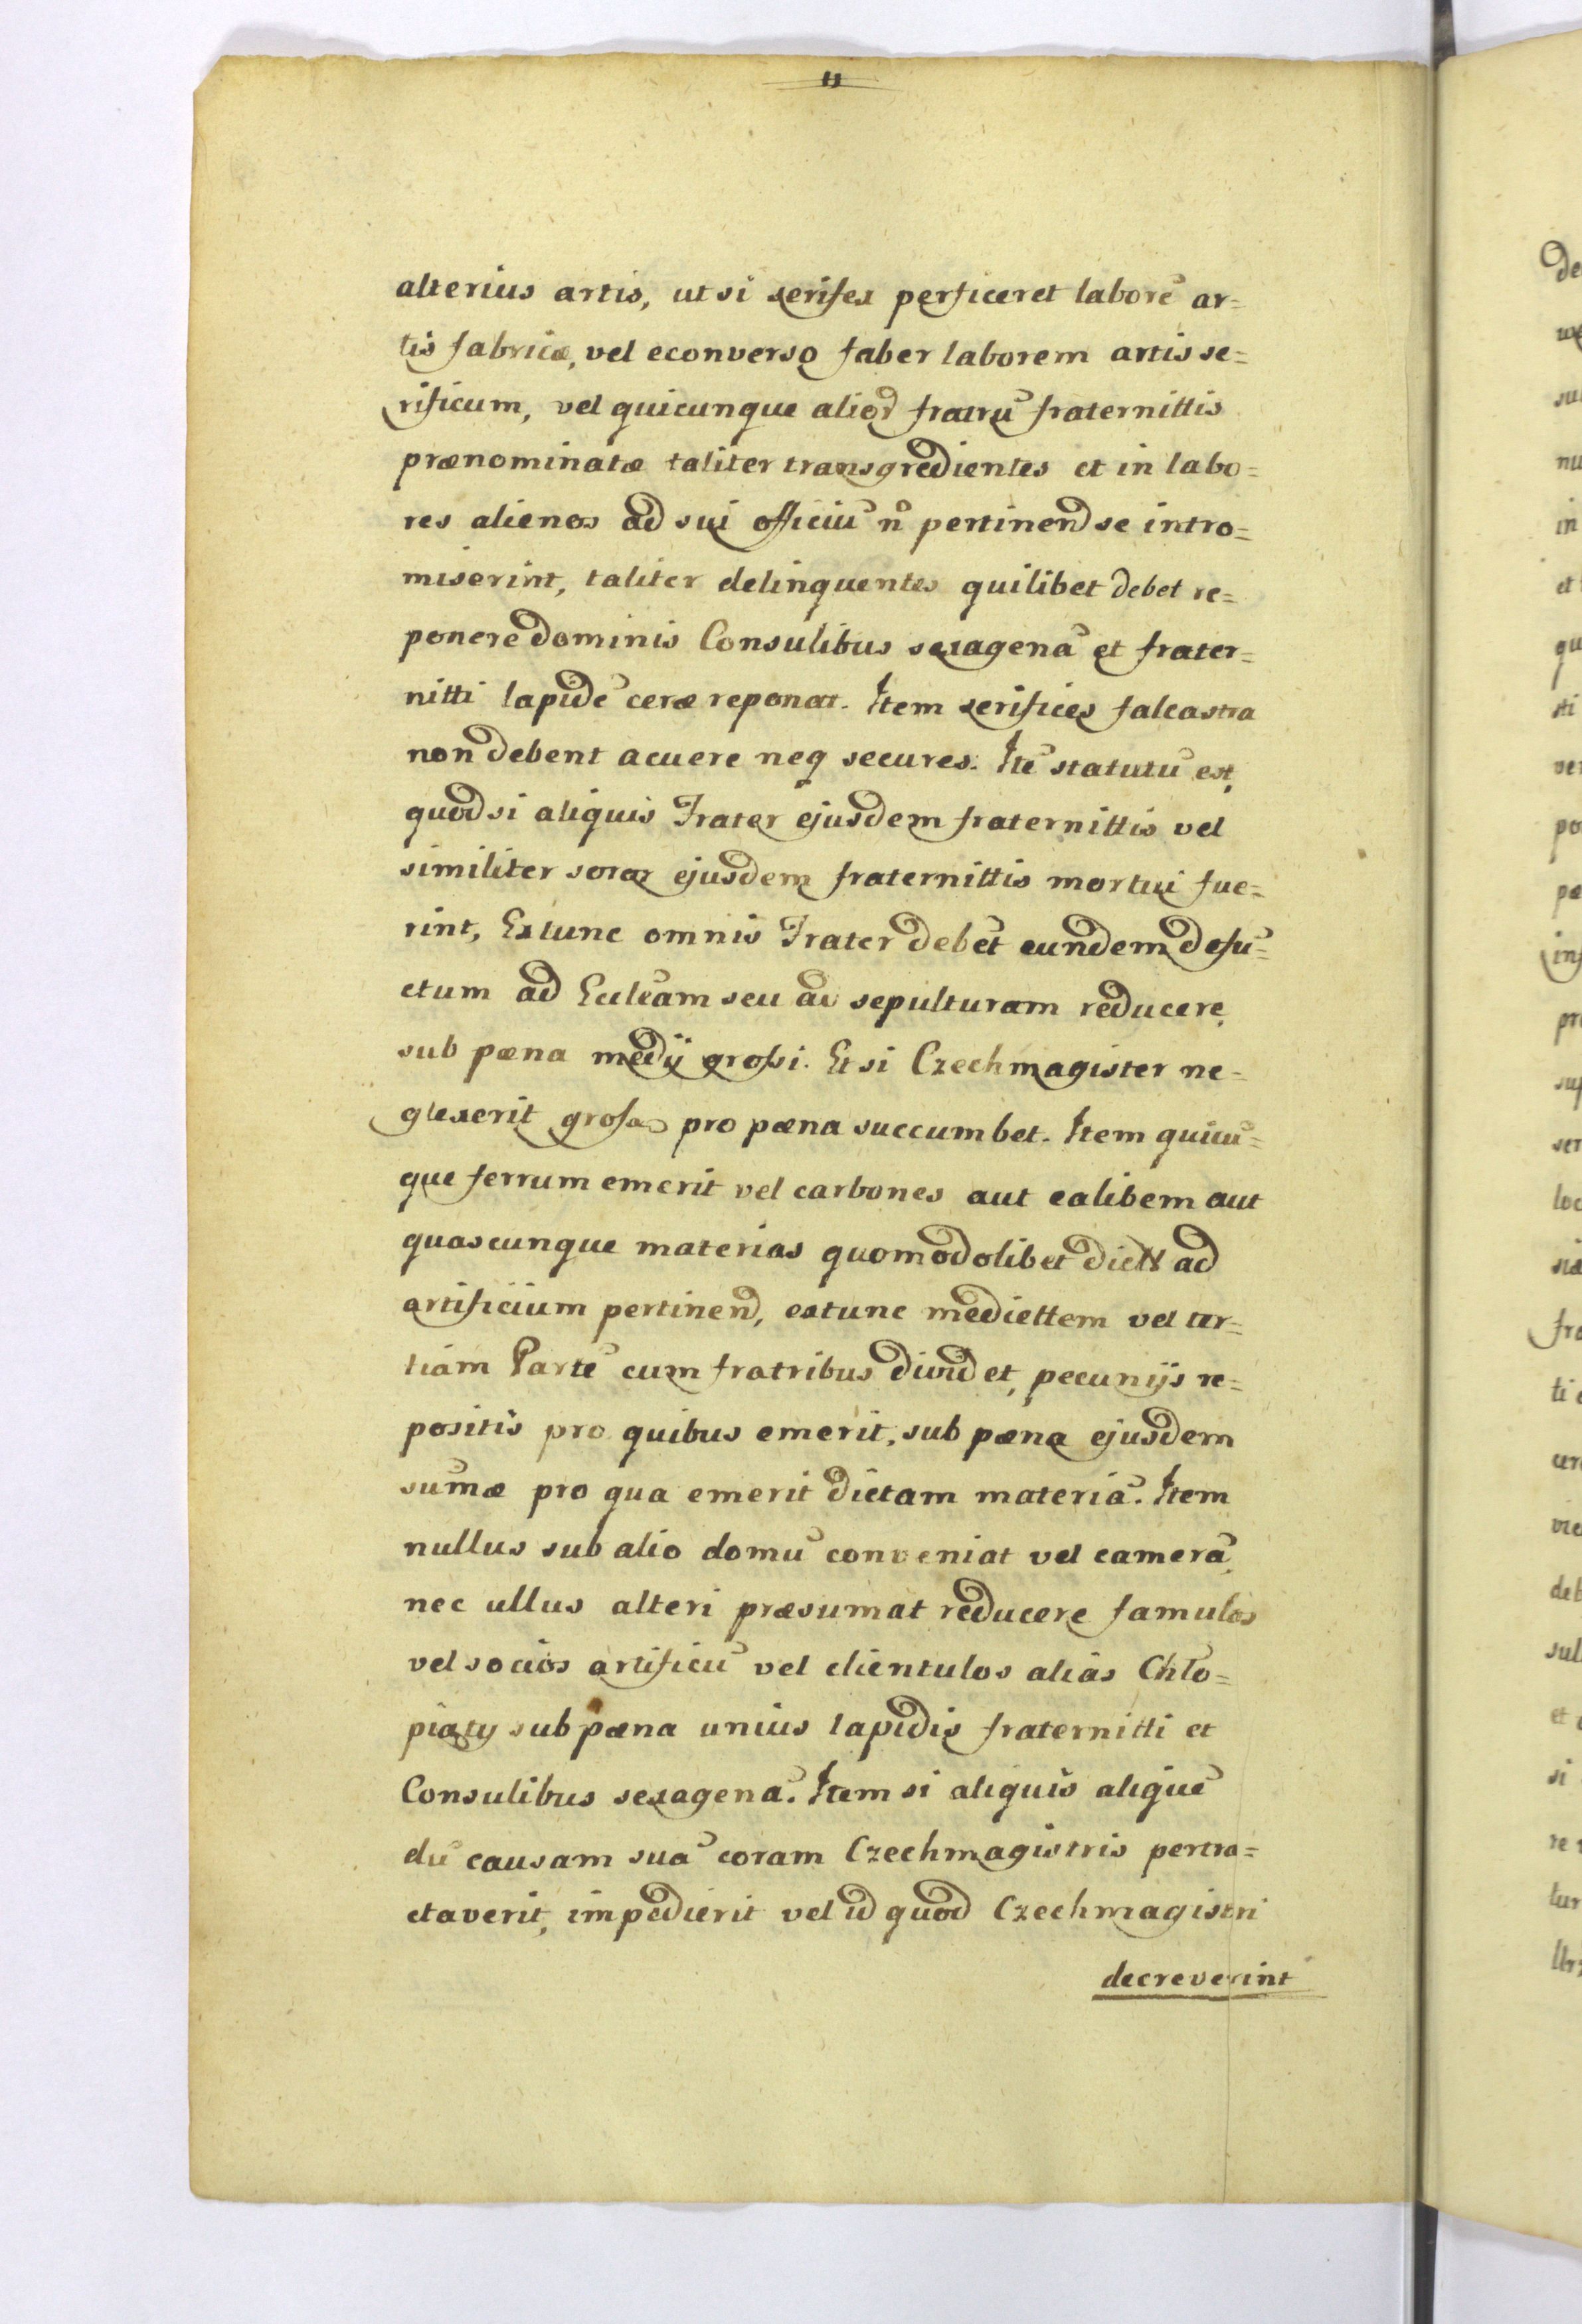 11
alterius artis, ut si serifex perficeret laborẽ ar=
tis fabricæ, vel econverso faber laborem artis se=
rificum, vel quicunque aliorʼ fratrũ fraternittis
prænominatæ taliter transgredientes et in labo=
res alienos ad sui officiũ nõ pertinenʼd se intro=
miserint, taliter delinquentes quilibet debet re=
ponere dominis Consulibus sexagenã et frater=
nitti lapidẽ ceræ reponat. Item serifices falcastra
non debent acuere neq secures. Itẽ statutũ est,
quod si aliquis Frater ejusdem fraternittis vel
similiter soror ejusdem fraternittis mortui fue=
rint, Extunc omnis Frater debet eundem defũ=
ctum ad Eccleam seu ad sepulturam reducere,
sub pæna medij grossi. Et si Czechmagister ne=
glexerit grossa pro pæna succumbet. Item quicũ=
que ferrum emerit vel carbones aut calibem aut
quascunque materias quomodolibet dictt ad
artificium pertinend, extunc mediettem vel ter=
tiam Partẽ cum fratribus dividet, pecunijs re=
positis pro quibus emerit, sub pæna ejusdem
sum̃æ pro qua emerit dictam materiã. Item
nullus sub alio domũ conveniat vel camerã,
nec ullus alteri præsumat reducere famulos
vel socios artificũ vel clientulos aliãs Chło=
pięty sub pæna unius lapidis fraternitti et
Consulibus sexagenã. Item si aliquis aliquẽ
dũ causam suã coram Czechmagistris pertra=
ctaverit, impedierit vel id quod Czechmagistri
decreverint
de
su
nu
in
et
qu
sti
ver
po
pæ
inf
pr
sup
ser
loc
siæ
fra
ti
deb
sul
et
si
re
tur